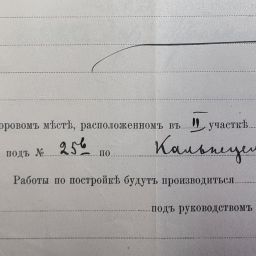 оровомъ мѣстѣ, расположенномъ въ II участкѣ
подъ № 25б по
Работы по постройкѣ будутъ производиться
подъ руководствомъ